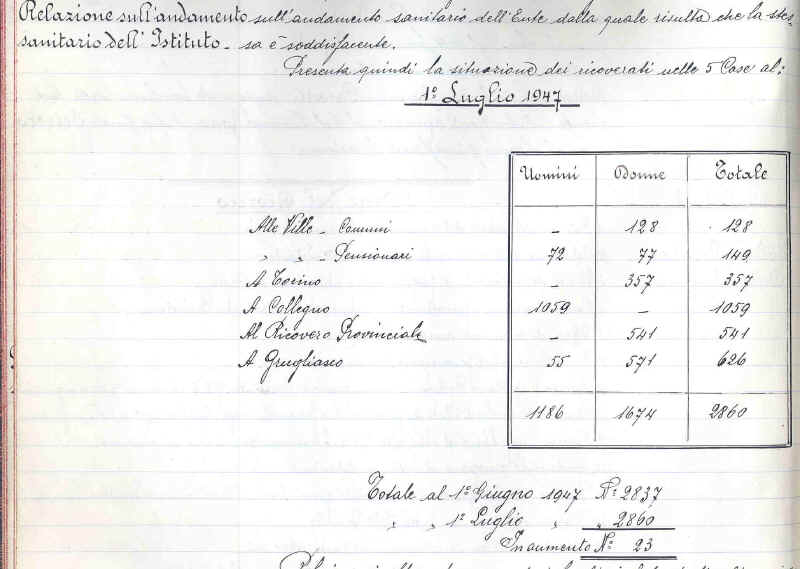 Relazione sull'andamento sull'andamento sanitario dell'Ente dalla quale risulta che la stes-
sanitario dell'Istituto- sa è soddisfacente.
Presenta quindi la situazione dei ricoverati nelle 5 Case al:
1º Luglio 1947
Uomini Donne Totale
Alle Ville - Comuni - 128 128
" " - Pensionari 72 77 149
A Torino - 357 357
A Collegno 1059 - 1059
Al Ricovero Provinciale - 541 541
A Grugliasco 55 571 626
1186 1674 2860
Totale al 1º Giugno 1947 Nº 2837
" " 1º Luglio " " 2860
In aumento Nº 23